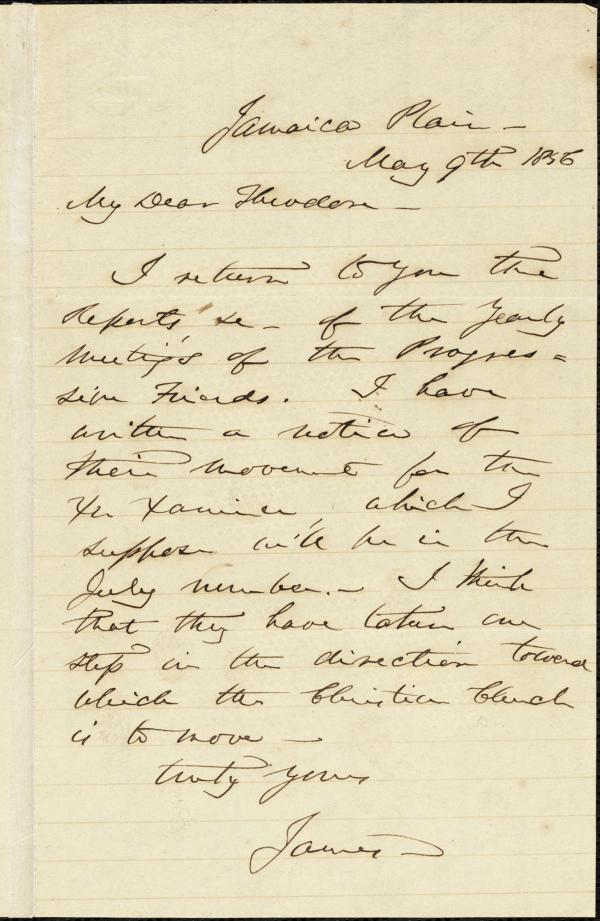 Jamaica Plain —
May 9th 1856
My Dear Theodore —
I return to you the
Reports &c — of the Yearly
Meetings of the Progres=
sive Friends. I have
written a notice of
their movement for the
Xn Xaminer, which I
suppose will be in the
July number. — I think
that they have taken one
step in the direction toward
which the Christian Church
is to move —
truly yours
James